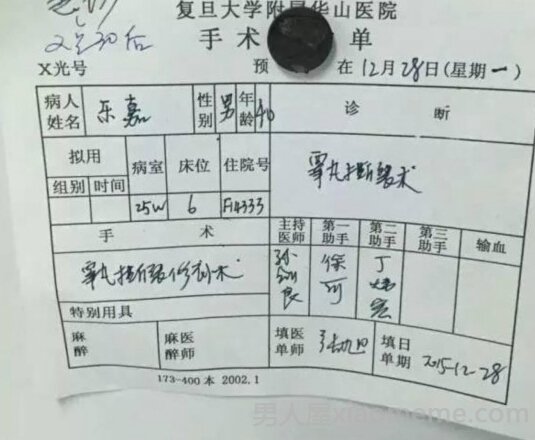 复旦大学附属华山医院
手术 单
X光号 预 在 12月28日(星期一)
病人姓名 乐嘉 性别 男 年龄 40 诊断
拟用 病室 床位 住院号
组别 时间
25W 6 F14333
睾丸扭断裂术
手术 主持医师 第一助手 第二助手 第三助手 输血
睾丸扭断裂修补术
徐可
特别用具
麻醉 麻医醉师 填医单师 填日单期 2015-12-28
173-400本 2002.1
男人屋xiaomeme.com